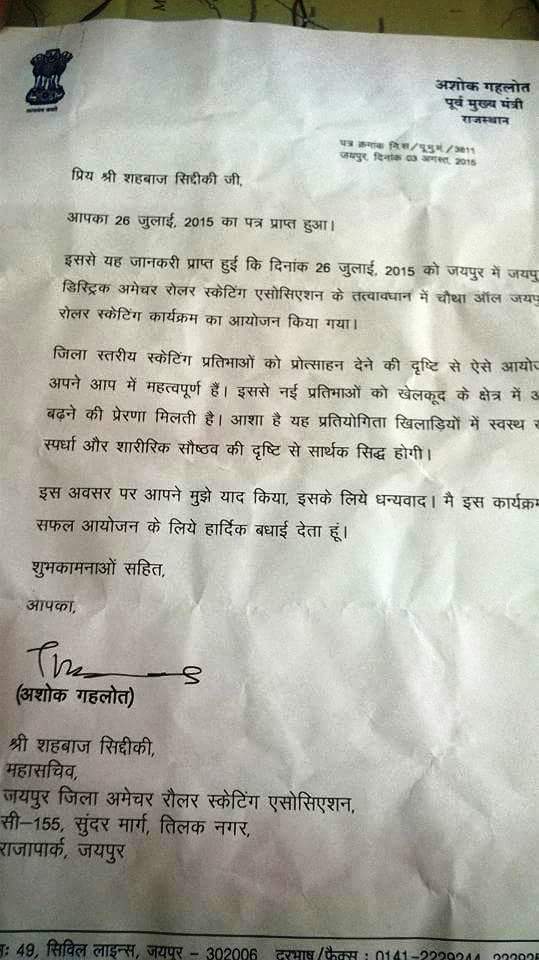 अशोक गहलोत
पूर्व मुख्य मंत्री
राजस्थान
पत्र क्रमांक नि.स/पू.मु.मं/3811
जयपुर, दिनांक 03 अगस्त, 2015
प्रिय श्री शहबाज सिद्दीकी जी,
आपका 26 जुलाई, 2015 का पत्र प्राप्त हुआ।
इससे यह जानकरी प्राप्त हुई कि दिनांक 26 जुलाई, 2015 को जयपुर में जयपु
डिस्ट्रिक अमेचर रोलर स्केटिंग एसोसिएशन के तत्वावधान में चौथा ऑल जयपु
रोलर स्केटिंग कार्यक्रम का आयोजन किया गया।
जिला स्तरीय स्केटिंग प्रतिभाओं को प्रोत्साहन देने की दृष्टि से ऐसे आयोज
अपने आप में महत्वपूर्ण हैं। इससे नई प्रतिभाओं को खेलकूद के क्षेत्र में
बढ़ने की प्रेरणा मिलती है। आशा है यह प्रतियोगिता खिलाड़ियों में स्वस्थ
स्पर्धा और शारीरिक सौष्ठव की दृष्टि से सार्थक सिद्ध होगी।
इस अवसर पर आपने मुझे याद किया, इसके लिये धन्यवाद। मै इस कार्यक्रम
सफल आयोजन के लिये हार्दिक बधाई देता हूं।
शुभकामनाओं सहित,
आपका,
(अशोक गहलोत)
श्री शहबाज सिद्दीकी,
महासचिव,
जयपुर जिला अमेचर रौलर स्केटिंग एसोसिएशन,
सी–155, सुंदर मार्ग, तिलक नगर,
राजापार्क, जयपुर
49, सिविल लाइन्स, जयपुर – 302006 दूरभाष/फैक्स : 0141-2229244